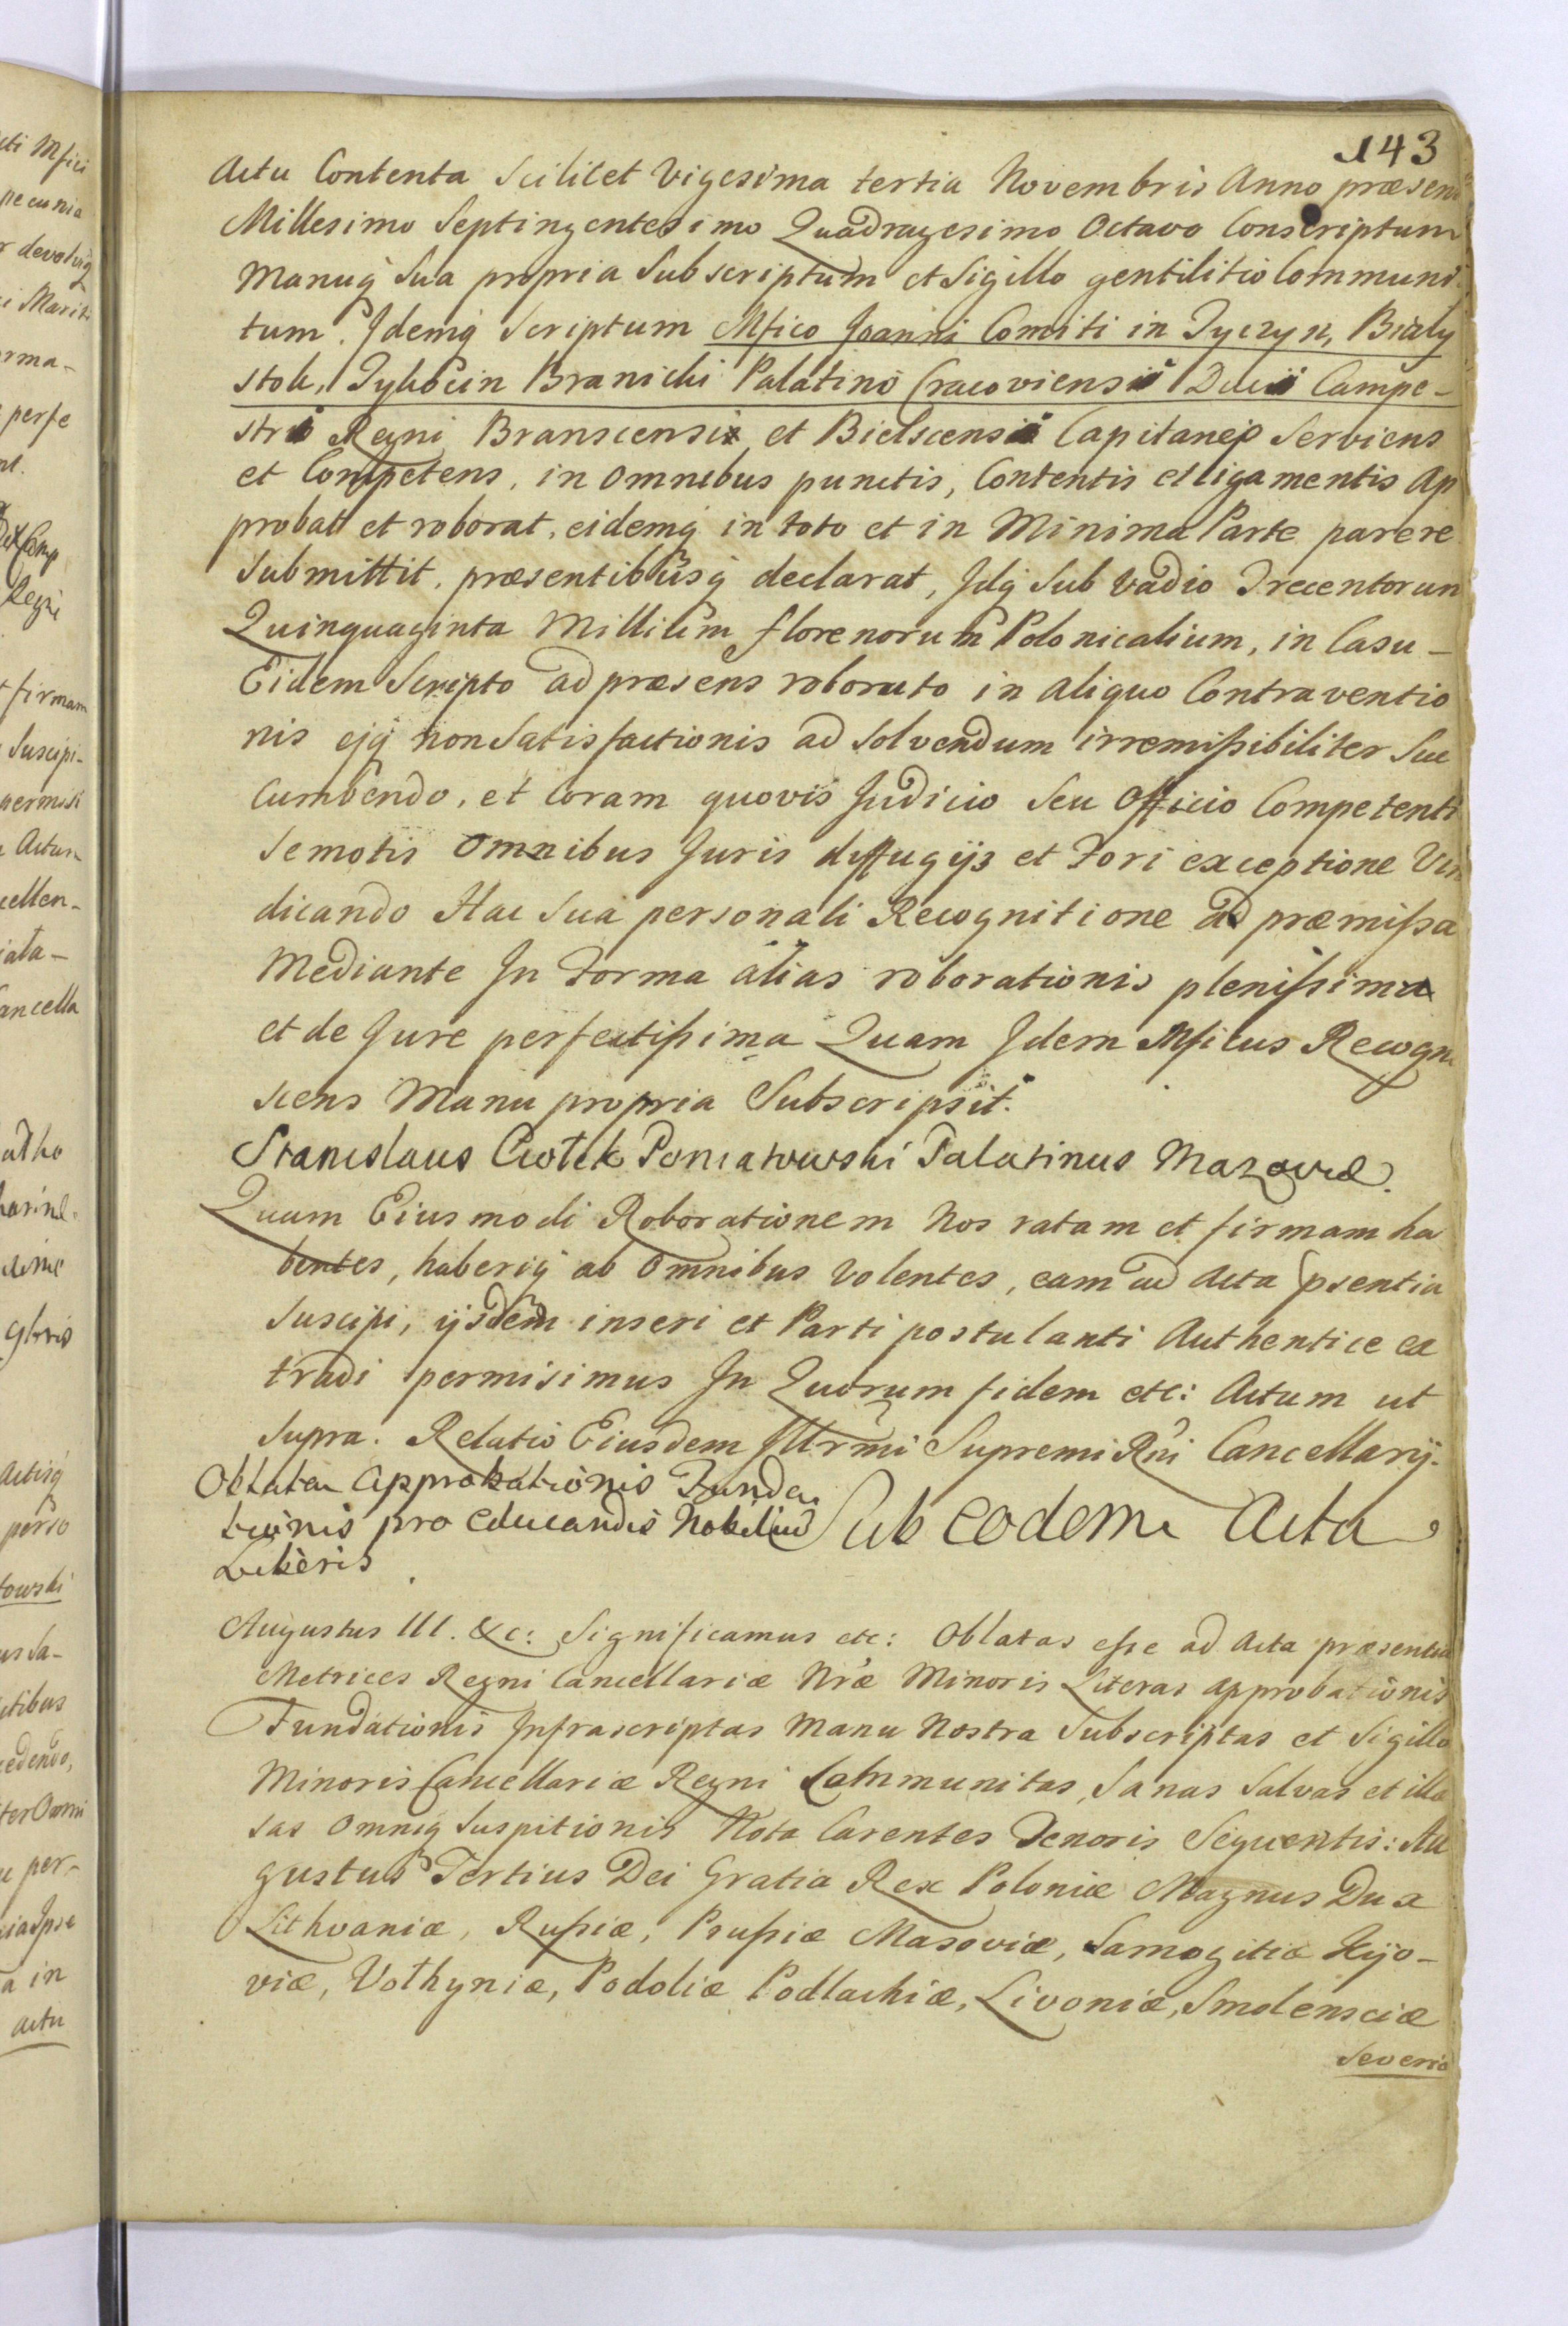 143
Actu Contenta Scilicet Vigesima tertia Novembris Anno præsen
Millesimo Septingentesimo Quadragesimo Octavo Conscriptum
Manuq̃ Sua propria Subscriptum et Sigillo gentilitio Communi
tum. Idemq̃ Scriptum Mfico Joanni Comiti in Tyczyn, Biały
stok, Tykocin Branicki Palatino Cracoviensi Duci Campe-
stri Regni Branscensi et Bielscensi Capitaneo Serviens
et Competens, in omnibus punctis, Contentis et ligamentis Ap
probat et roborat, eidemq̃ in toto et in Minima Parte parere
Submittit, præsentibusq̃ declarat, Idq̃ Sub Vadio Trecentorum
Quinquaginta Millium florenorum Polonicalium, in Casu -
Eidem Scripto ad præsens roborato in aliquo Contraventio
nis ejq̃ non Satisfactionis ad Solvendum irremissibiliter Suc
Cumbendo, et Coram quovis Judicio Seu Officio Competenti
Semotis Omnibus Juris diffugijs et Fori exceptione Vin
dicando Hac Sua personali Recognitione ad præmissa
Mediante In Forma alias roborationis plenissima
et de Jure perfectissima Quam Idem Mficus Recogn
scens Manu propria Subscripsit.
Stanislaus Ciołek Poniatowski Palatinus Mazoviæ.
Quam Eiusmodi Roborationem Nos ratam et firmam ha
bentes, haberiq̃ ab Omnibus Volentes, eam ad Acta psentia
Suscipi, ijsdem inseri et Parti postulanti Authentice ex
tradi permisimus In Quorum fidem etc: Actum ut
Supra. Relatio Eiusdem Illrmi Supremi Rni Cancellarij.
Oblata Approbationis Funda
tionis pro educandis Nobilium
Liberis
Sub eodem Actu
Augustus III. &c: Significamus etc: Oblatas esse ad Acta præsentia
Metrices Regni Cancellariæ Nræ Minoris Literas approbationis
Fundationis Infrascriptas Manu Nostra Subscriptas et Sigillo
Minoris Cancellariæ Regni Communitas, Sanas Salvas et illæ
sas Omniq̃ Suspitionis Nota Carentes Tenoris Sequentis: Au
gustus Tertius Dei Gratia Rex Poloniæ Magnus Dux
Lithvaniæ, Russiæ, Prussiæ Masoviæ, Samogitiæ Kijo-
viæ, Volhyniæ, Podoliæ Podlachiæ, Livoniæ, Smolensciæ
Severiæ